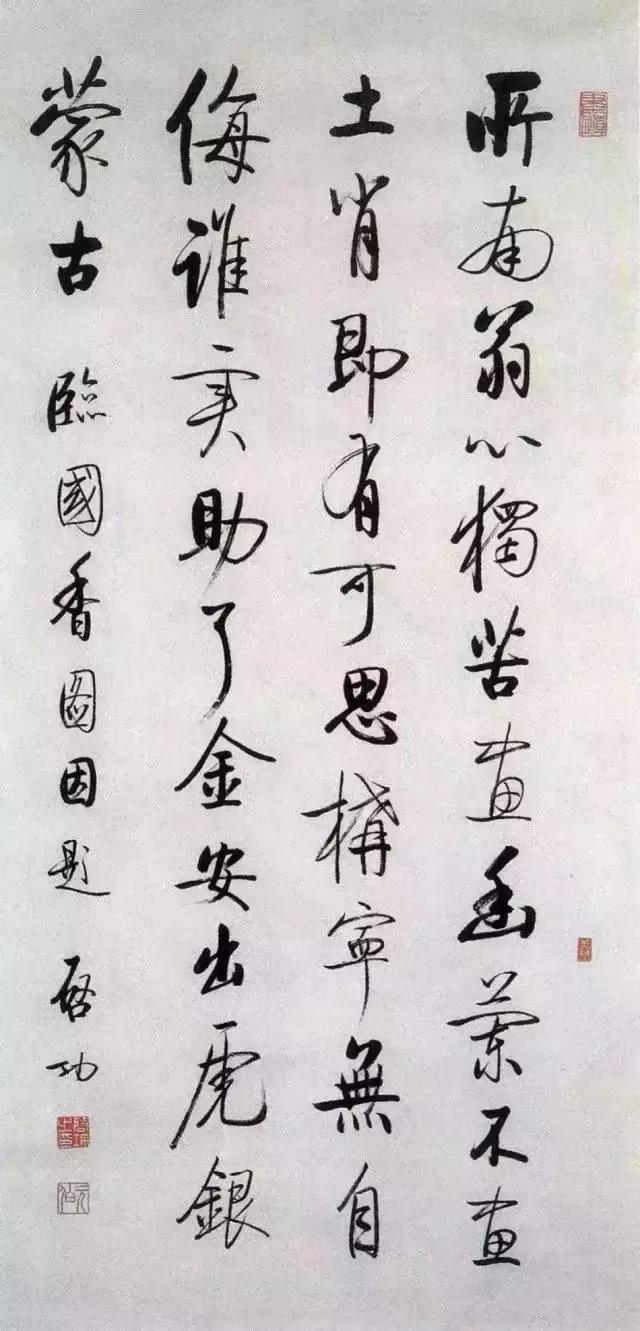 所南翁心獨苦畫幽蘭不畫
土肖即有可思構寧無自
侮誰实助了金安出虎銀
蒙古 臨國香圖因題 啓功